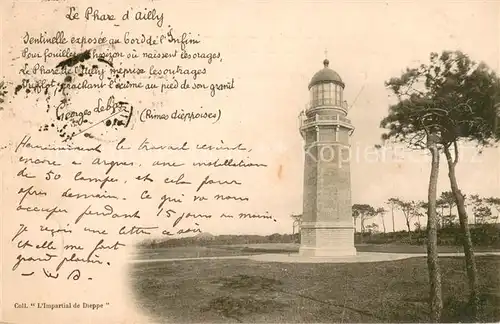 Le Phare d'Ailly
Sentinelle exposée au bord de l'Infini
Pour fouiller l'horizon où naissent les orages,
Le Phare de l'Ailly méprise les outrages
Du flot crachant l'écume au pied de son granit
Georges de
(Rimes dieppoises)
le travail
encore à Arques, une installation
de 50 lampes, et cela pour
après demain. Ce qui va nous
occuper pendant 15 jours au moins
Je reçois une lettre ce soir
et elle me fait
grand plaisir.
Coll. " L'Impartial de Dieppe "